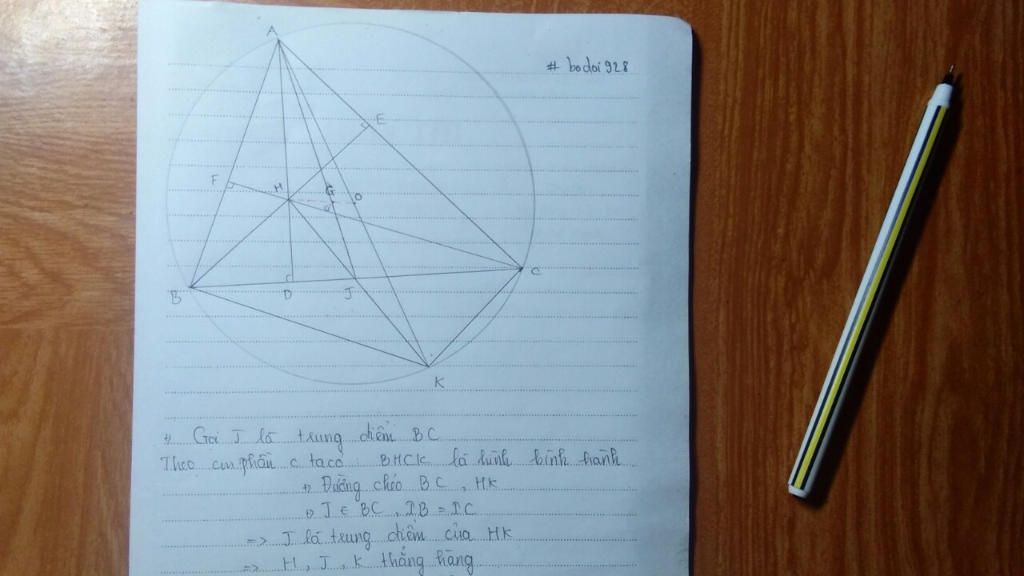 # bodoi928
A
E
F
H
G
O
C
B
D
J
K
+) Gọi J là trung điểm BC
Theo cm phần c ta có: BHCK là hình bình hành
+) Đường chéo BC, HK
+) J ∈ BC, IB = IC
=> J là trung điểm của HK
=> H, J, K thẳng hàng